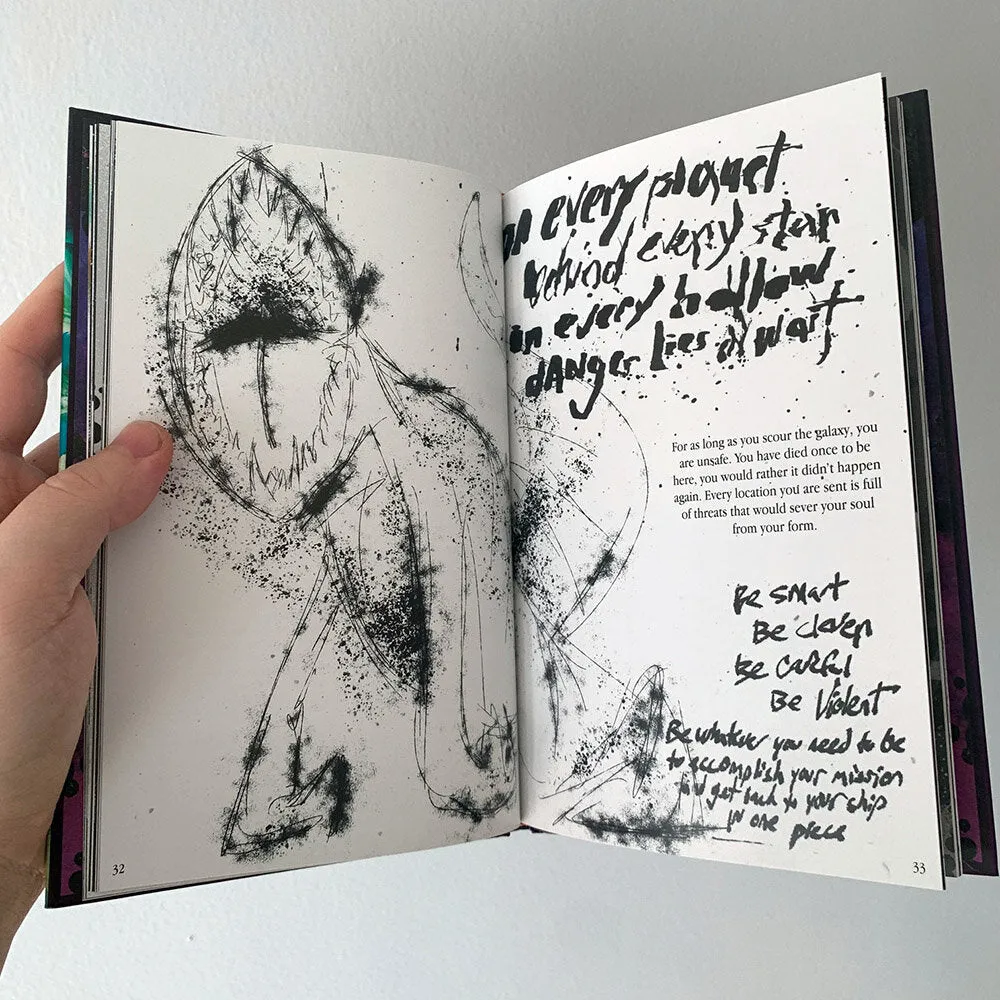 on every planet
behind every star
in every hollow
danger lies in wait
For as long as you scour the galaxy, you
are unsafe. You have died once to be
here, you would rather it didn't happen
again. Every location you are sent is full
of threats that would sever your soul
from your form.
Be smart
Be clever
Be careful
Be Violent
Be whatever you need to be
to accomplish your mission
and get back to your ship
in one piece
32
33